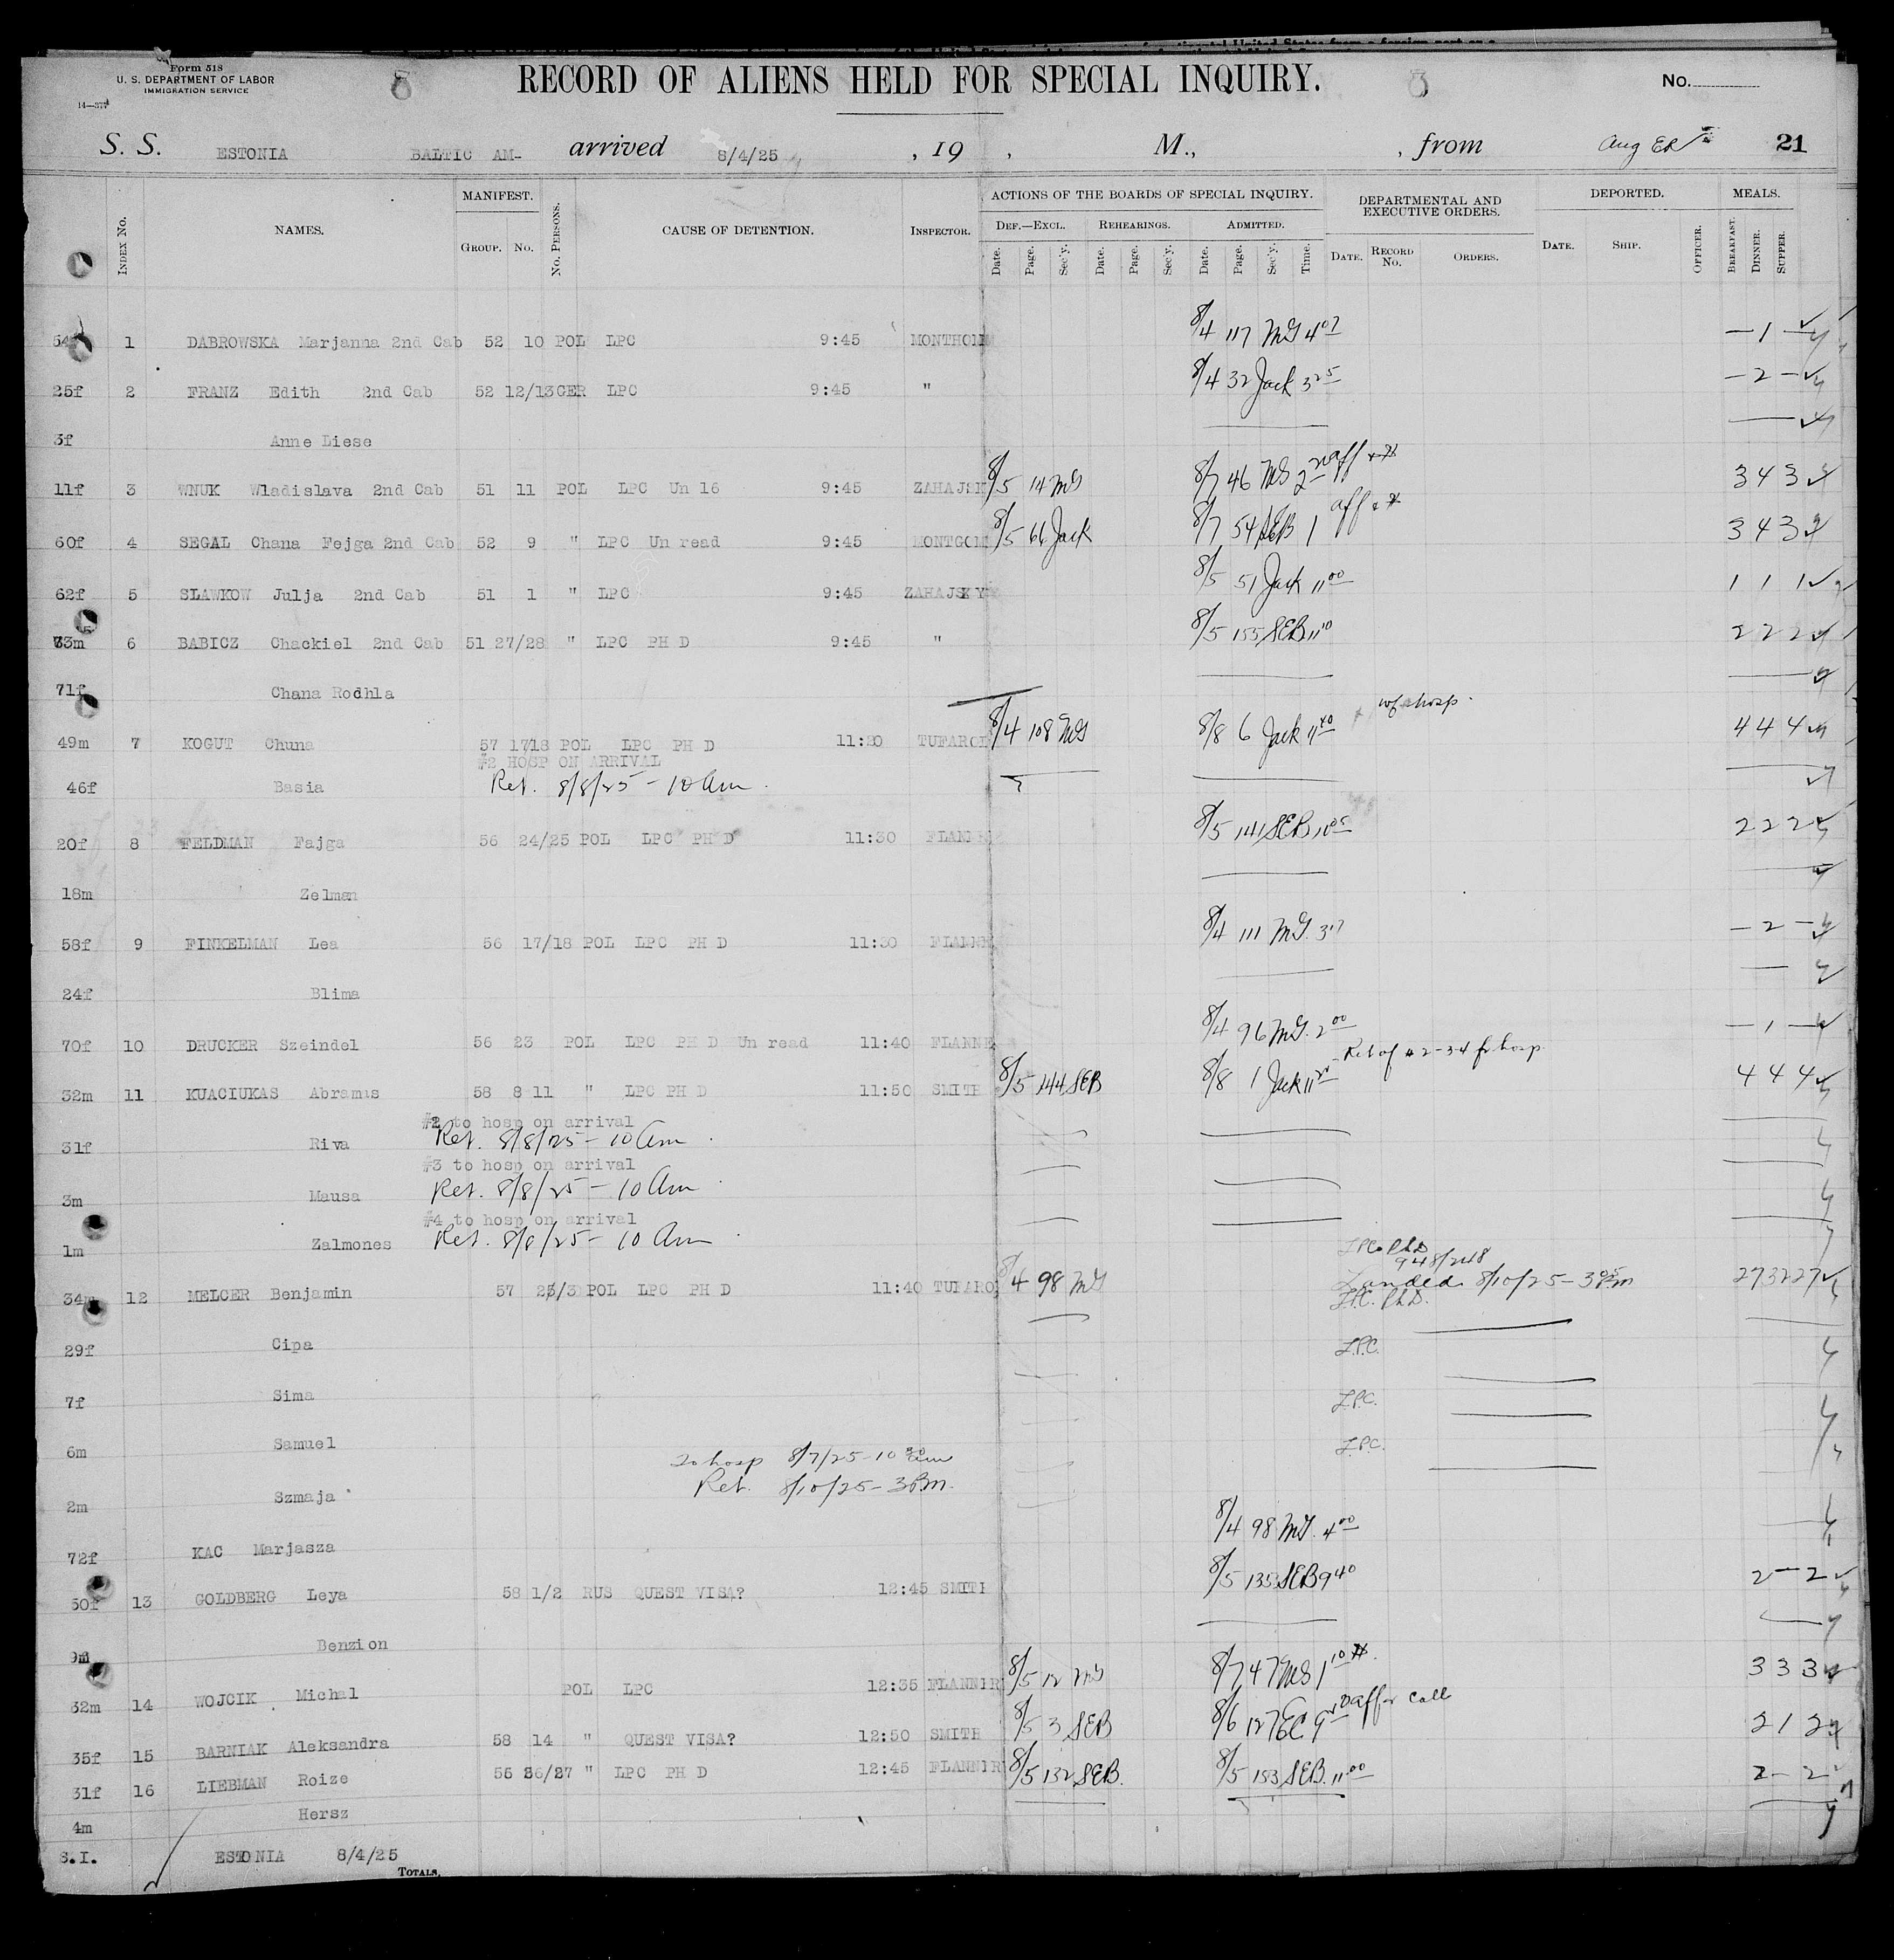 Form 518
U. S. DEPARTMENT OF LABOR
IMMIGRATION SERVICE
14—377
RECORD OF ALIENS HELD FOR SPECIAL INQUIRY.
No.
S. S. ESTONIA BALTIC AM- arrived 8/4/25 , 19 , M., , from Aug 21
INDEX No. NAMES. MANIFEST. GROUP. No. No. PERSONS. CAUSE OF DETENTION. INSPECTOR. ACTIONS OF THE BOARDS OF SPECIAL INQUIRY. DEF.—EXCL. REHEARINGS. ADMITTED. DEPARTMENTAL AND EXECUTIVE ORDERS. DEPORTED. MEALS.
Date. Page. Sec'y. Date. Page. Sec'y. Date. Page. Sec'y. Time. DATE. RECORD No. ORDERS. DATE. SHIP. OFFICER. BREAKFAST. DINNER. SUPPER.
1 DABROWSKA Marjanna 2nd Cab 52 10 POL LPC 9:45 8/4 117 MG 4 07 — 1 —
25f 2 FRANZ Edith 2nd Cab 52 12/13 GER LPC 9:45 " 8/4 32 Jack 3 25 — 2 —
3f Anne Liese
11f 3 WNUK Wladislava 2nd Cab 51 11 POL LPC Un 16 9:45 ZAHAJSK 8/5 14 MG 8/7 46 MG 2 aff 3 4 3
60f 4 SEGAL Chana Fejga 2nd Cab 52 9 " LPC Un read 9:45 MONTGOM 8/5 66 Jack 8/7 54 SEB 1 aff 3 4 3
62f 5 SLAWKOW Julja 2nd Cab 51 1 " LPC 9:45 ZAHAJSKY 8/5 51 Jack 11 00 1 1 1
73m 6 BABICZ Chackiel 2nd Cab 51 27/28 " LPC PH D 9:45 " 8/5 155 SEB 11 10 2 2 2
71f Chana Rodhla
49m 7 KOGUT Chuna 57 1718 POL LPC PH D 11:20 TUFARO 8/4 108 MG 8/8 6 Jack 11 40 hosp. 4 4 4
#2 HOSP ON ARRIVAL
46f Basia Ret. 8/8/25 - 10 am.
20f 8 FELDMAN Fajga 56 24/25 POL LPC PH D 11:30 FLANN 8/5 141 SEB 10 05 2 2 2
18m Zelman
58f 9 FINKELMAN Lea 56 17/18 POL LPC PH D 11:30 FLANN 8/4 111 MG. — 2 —
24f Blima
70f 10 DRUCKER Szeindel 56 23 POL LPC PH D Un read 11:40 FLANNE 8/4 96 MG. 2 00 — 1 —
32m 11 KUACIUKAS Abramus 58 8 11 " LPC PH D 11:50 SMITH 8/5 144 SEB 8/8 1 Jack 11 Ret of #2-3-4 fr hosp. 4 4 4
#2 to hosp on arrival
31f Riva Ret. 8/8/25 - 10 am.
#3 to hosp on arrival
3m Mausa Ret. 8/8/25 - 10 am.
#4 to hosp on arrival
1m Zalmones Ret. 8/8/25 - 10 Am.
LPC PhD
948/248
34m 12 MELCER Benjamin 57 POL LPC PH D 11:40 TUFARO 8/4 98 MG Landed 8/10/25 - 3 Pm 27 32 27
L.P.C. PhD.
29f Cipa L.P.C.
7f Sima L.P.C.
6m Samuel L.P.C.
To hosp 8/7/25 - 10 am
2m Szmaja Ret. 8/10/25 - 3 Pm.
72f KAC Marjasza 8/4 98 MG. 4 00
50f 13 GOLDBERG Leya 58 1/2 RUS QUEST VISA? 12:45 SMITH 8/5 135 SEB 9 40 2 — 2
9m Benzion
32m 14 WOJCIK Michal POL LPC 12:35 FLANNIR 8/5 12 MG 8/7 47 MG 1 10 3 3 3
35f 15 BARNIAK Aleksandra 58 14 " QUEST VISA? 12:50 SMITH 8/5 3 SEB 8/6 127 EC 9 aff call 2 1 2
31f 16 LIEBMAN Roize 56 26/27 " LPC PH D 12:45 FLANNIR 8/5 132 SEB. 8/5 153 SEB. 11 00 2 - 2
4m Hersz
S.I. ESTONIA 8/4/25
TOTALS.